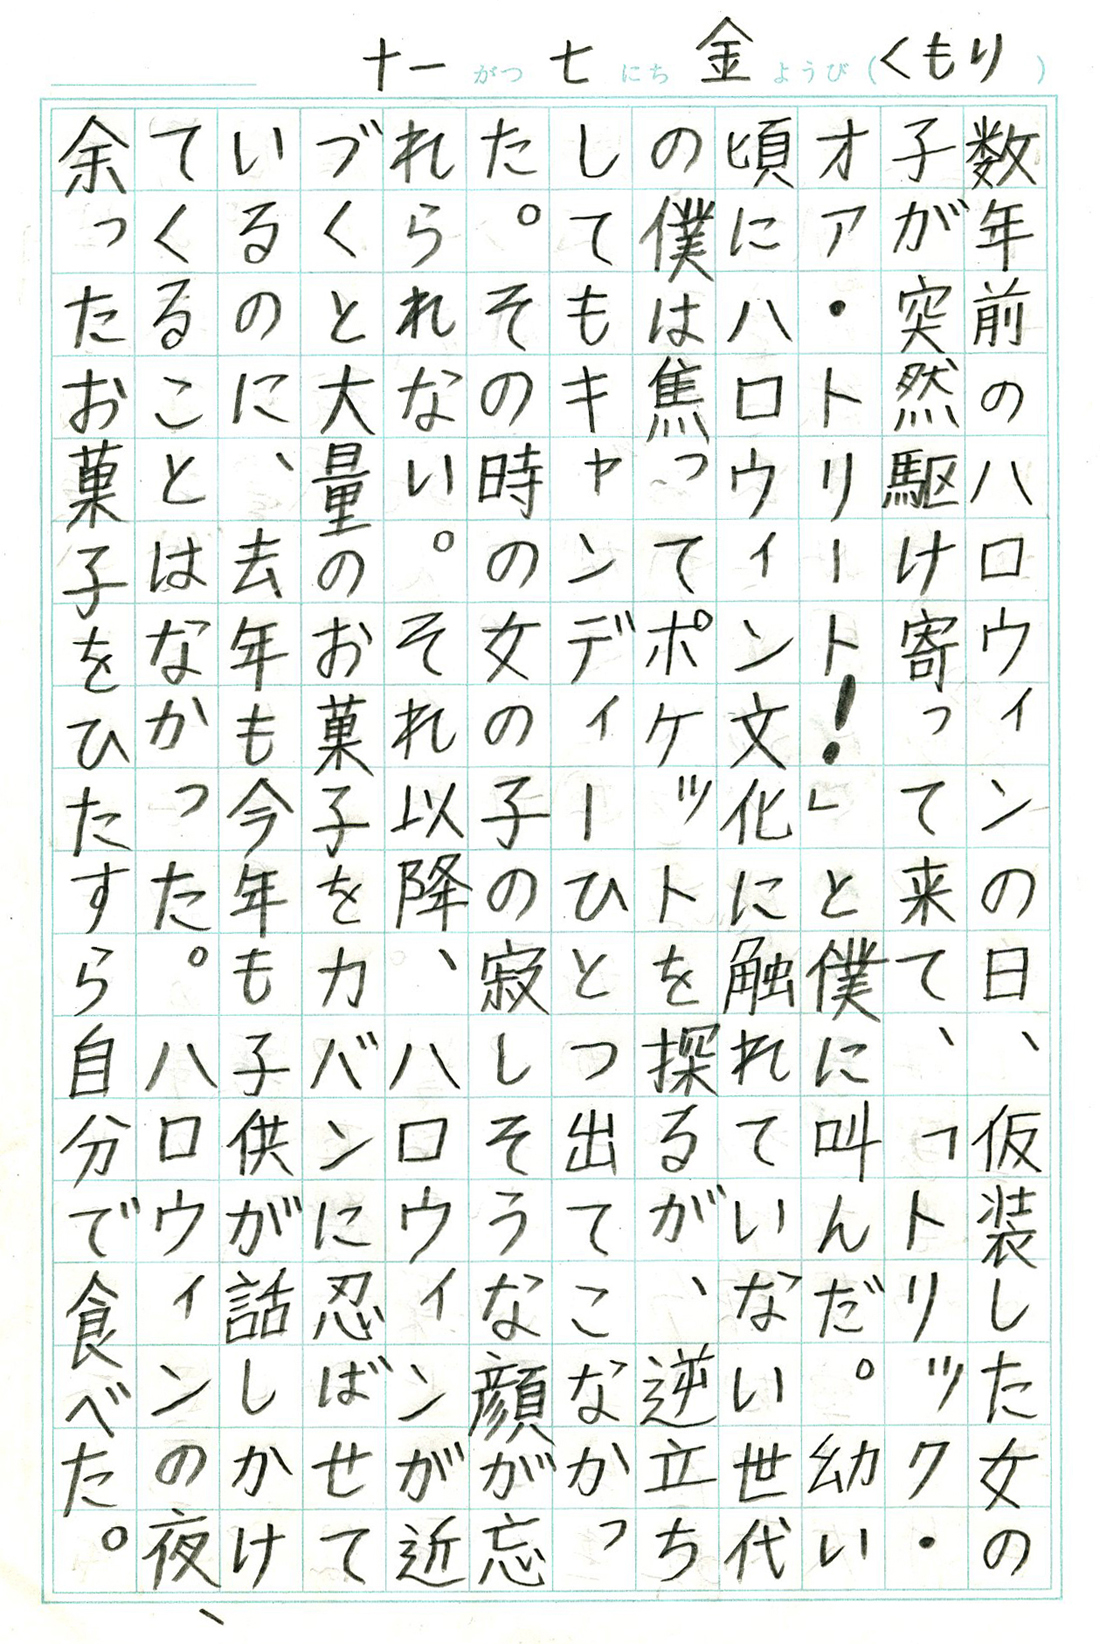 十一がつ七にち金ようび(くもり)
数年前のハロウィンの日、仮装した女の
子が突然駆け寄って来て、「トリック・
オア・トリート!」と僕に叫んだ。幼い
頃にハロウィン文化に触れていない世代
の僕は焦ってポケットを探るが、逆立ち
してもキャンディーひとつ出てこなかっ
た。その時の女の子の寂しそうな顔が忘
れられない。それ以降、ハロウィンが近
づくと大量のお菓子をカバンに忍ばせて
いるのに、去年も今年も子供が話しかけ
てくることはなかった。ハロウィンの夜、
余ったお菓子をひたすら自分で食べた。